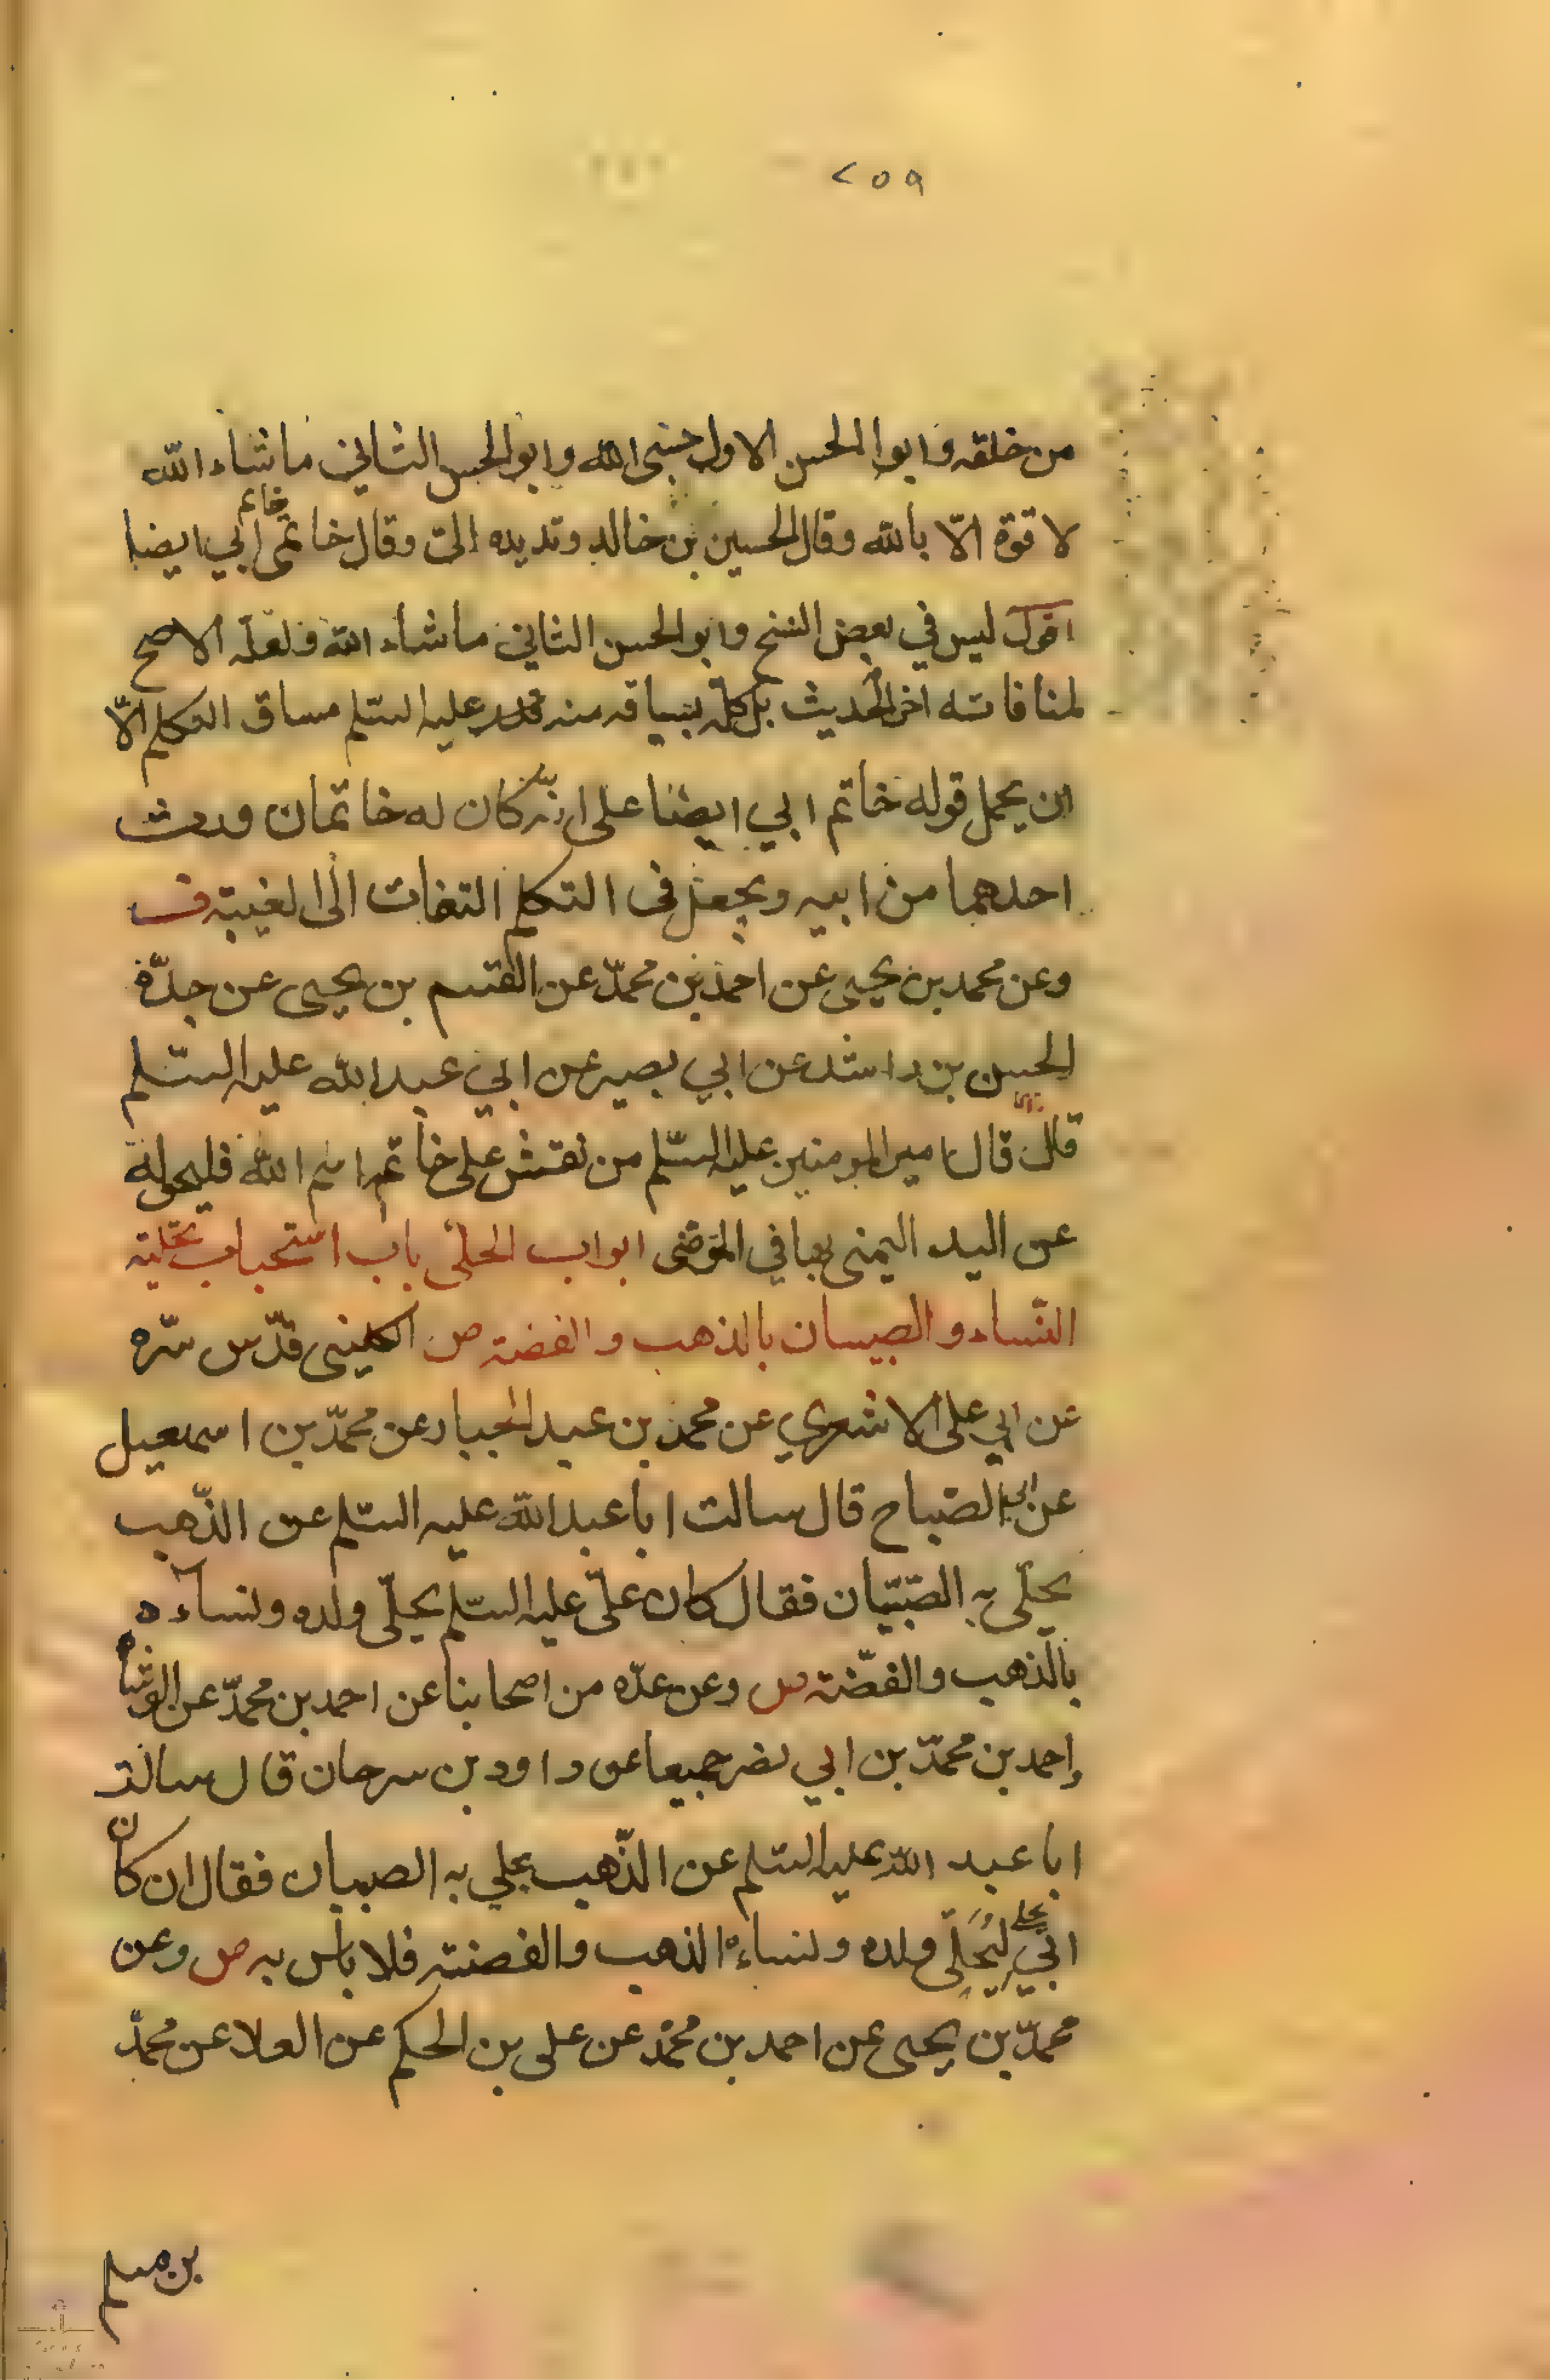 ٢٥٩
من خلقه وابوا الحسن الاول حسبى الله وابو الحسن الثاني ما شاء الله
لا قوة الّا بالله وقال الحسين بن خالد وتد يده الىّ وقال خاتمى خاتم ابي ايضا
اقول ليس في بعض النسخ وابو الحسن الثاني ما شاء الله فلعله الاصح
لمنافاته اخر الحديث بل كلّه بسياقه منه عليه السّلم مساق التكلم الّا
ان يحمل قوله خاتم ابي ايضا على انّه كان له خاتمان ورث
احدهما من ابيه ويجعل في التكلم التفات الى الغيبة ف
وعن محمد بن يحيى عن احمد بن محمّد عن القسم بن يحيى عن جدّه
الحسن بن راشد عن ابي بصير عن ابي عبد الله عليه السّلم
قال قال امير المومنين عليه السّلم من نقش على خاتمه اسم الله فليحوله
عن اليد اليمنى بها في المتوضى ابواب الحلى باب استحباب تحلية
النّساء و الصبيان بالذهب و الفضة ص الكلينى قدّس سّره
عن ابي على الاشعري عن محمد بن عبد الجبار عن محمّد بن اسمعيل
عن ابي الصّباح قال سالت ابا عبد الله عليه السّلم عن الذّهب
يحلّى به الصّبيّان فقال كان علىّ عليه السّلم يحلّى ولده ونساءه
بالذهب والفضّة ص وعن عدّه من اصحابنا عن احمد بن محمّد عن الوشاء
واحمد بن محمّد بن ابي نصر جميعا عن داود بن سرحان قال سالت
ابا عبد الله عليه السّلم عن الذّهب يحلي به الصبيان فقال ان كان
ابي ليُحلّى ولده ونساءه الذهب والفضة فلا باس به ص وعن
محمّد بن يحيى عن احمد بن محمّد عن على بن الحكم عن العلا عن محمّد
بن مسلم